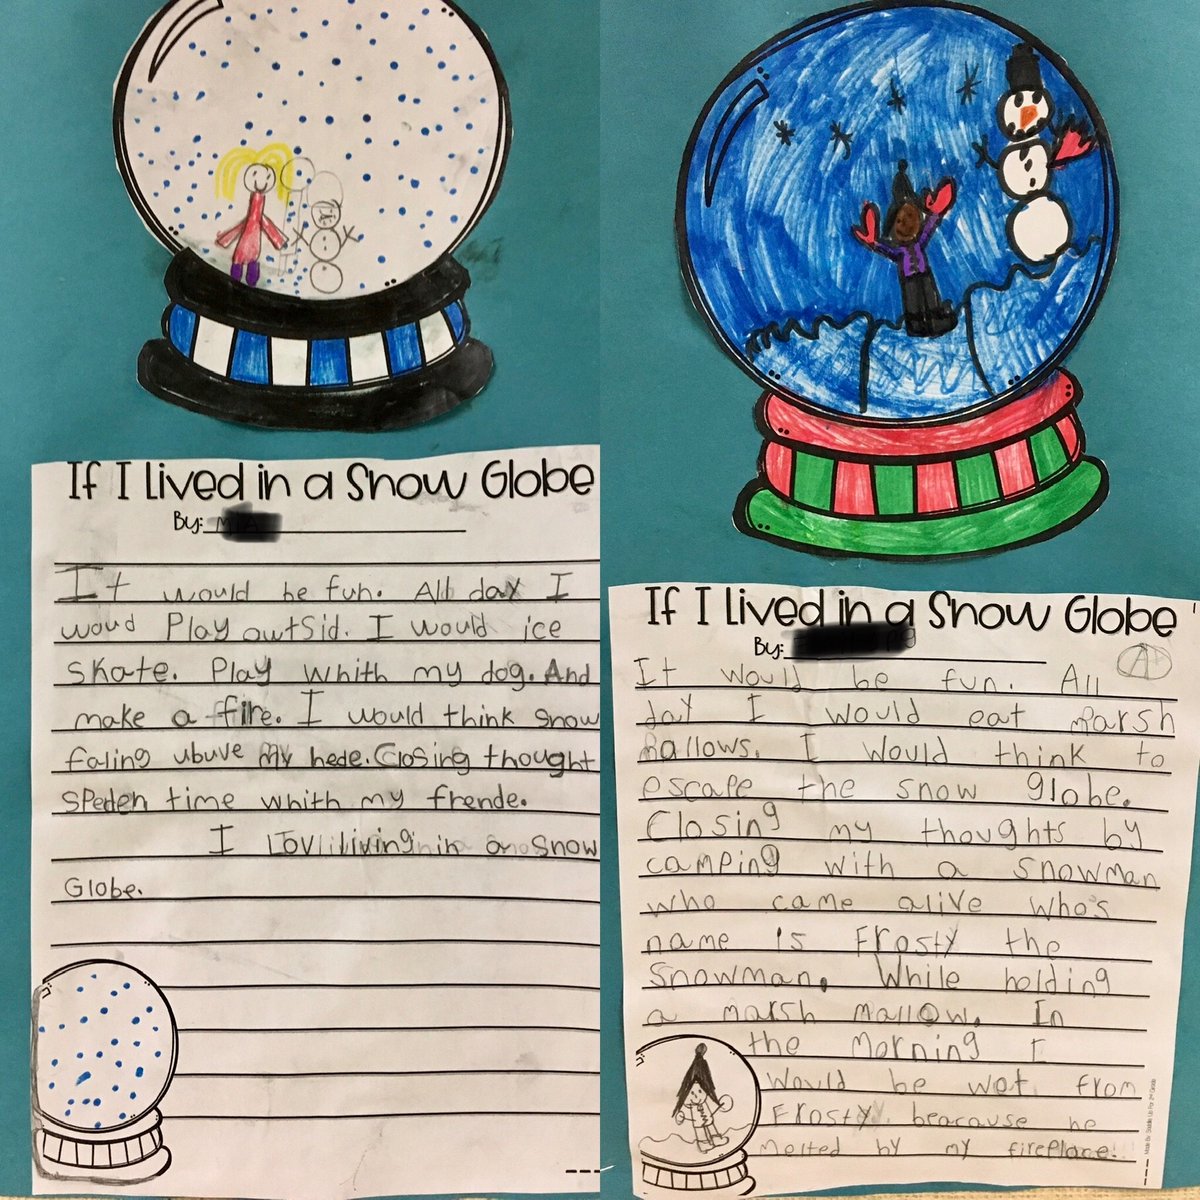 If I Lived in a Snow Globe
By:
It would be fun. All day I
woud Play outsid. I would ice
skate. Play whith my dog. And
make a fire. I would think snow
faling ubuve my hede. Closing thought
speden time whith my frende.
I Lov living in a snow
Globe.
If I Lived in a Snow Globe
By:
A+
It would be fun. All
day I would eat marsh
mallows. I would think to
escape the snow globe.
Closing my thoughts by
camping with a snowman
who came alive who's
name is Frosty the
snowman. While holding
a marsh mallow. In
the morning I
would be wet from
Frosty beacause he
melted by my fireplace.